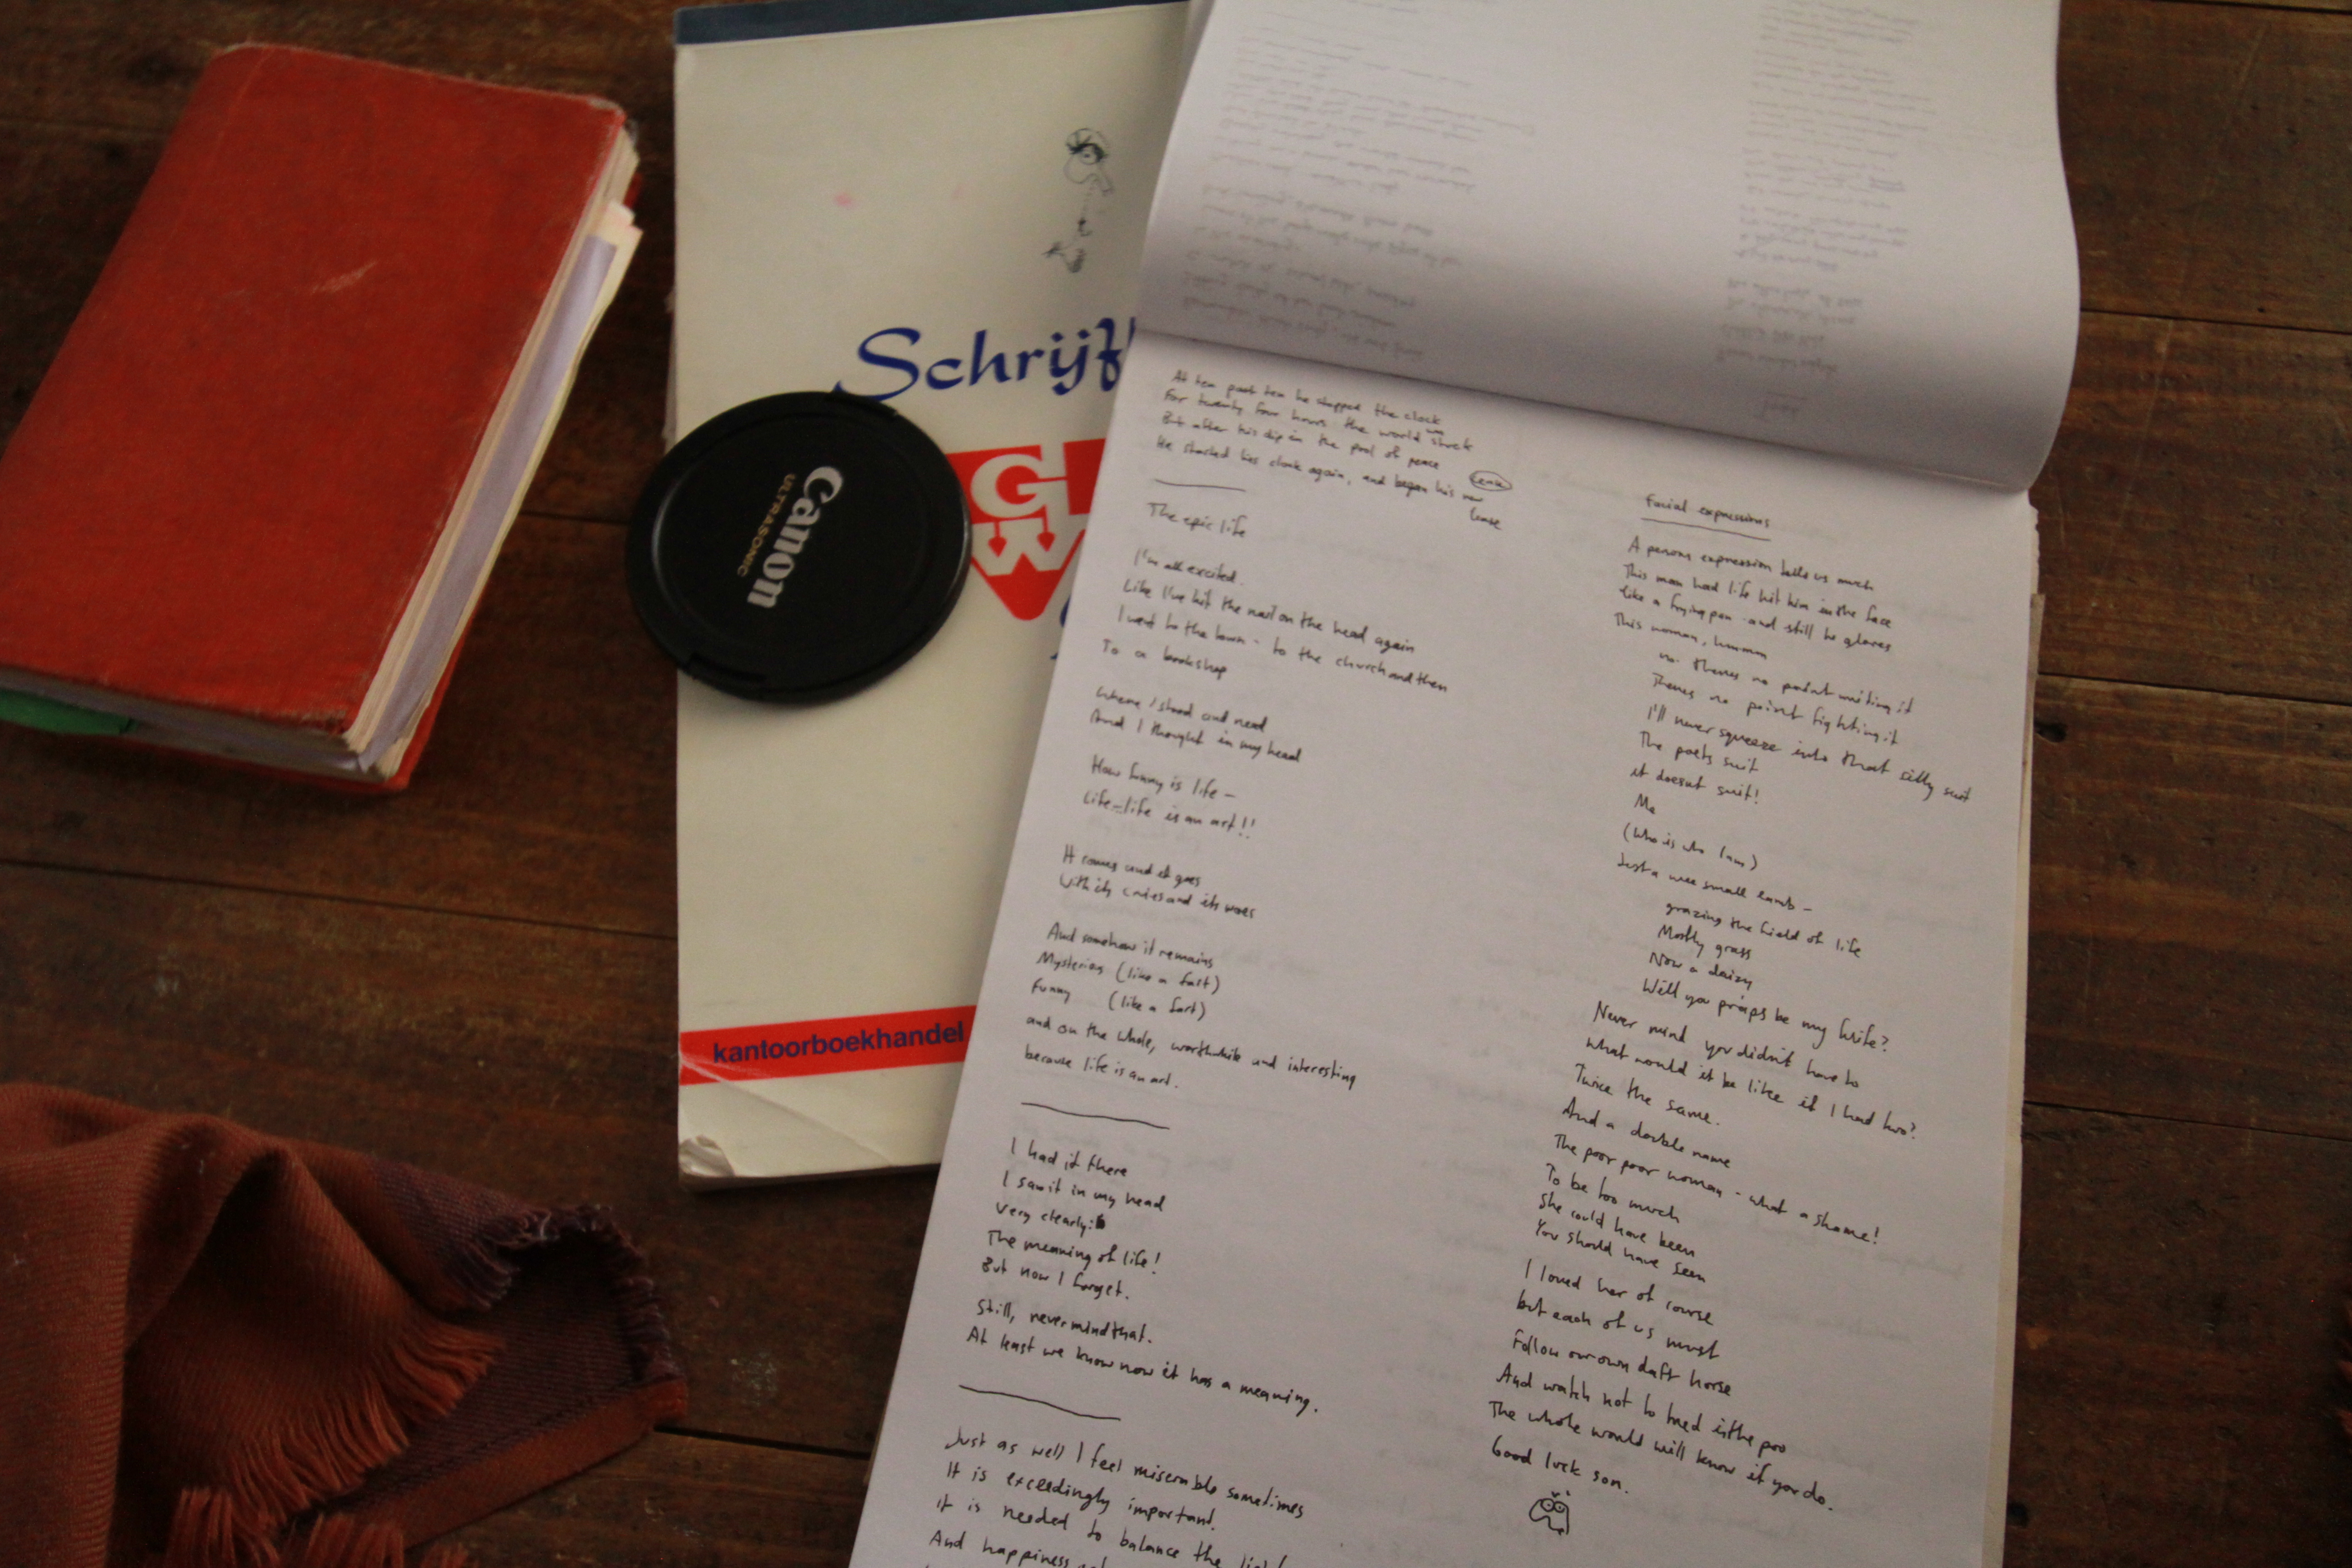 Schrijf
G
W
Canon
ULTRASONIC
kantoorboekhandel
At ten past ten he stopped the clock
For twenty four hours the world was struck
But after his dip in the pool of peace
He started his clock again, and began his new lease
lease
The epic life
I'm all excited.
Like I've hit the nail on the head again
I went to the town - to the church and then
To a bookshop
Where I stood and read
And I thought in my head
How funny is life -
Life - life is an art!!
It comes and it goes
With its and its woes
And somehow it remains
Mysterious (like a fart)
Funny (like a fart)
and on the whole, worthwhile and interesting
because life is an art.
I had it there
I saw it in my head
Very clearly:
The meaning of life!
But now I forget.
Still, never mind that.
At least we know now it has a meaning.
Just as well I feel miserable sometimes
It is exceedingly important.
it is needed to balance the
And happiness
Facial expressions
A persons expression tells us much
This man had life hit him in the face
like a frying pan - and still he glares
This woman, hmmm
no. Theres no point writing it
Theres no point fighting it
I'll never squeeze into that silly suit
The poets suit
it doesnt suit!
Me
(Who is who I am)
Just a wee small lamb -
grazing the field of life
Mostly grass
Now a daizy
Will you praps be my wife?
Never mind you didn't have to
What would it be like if I had two?
Twice the same.
And a double name
The poor poor woman - what a shame!
To be too much
She could have been
You should have seen
I loved her of course
but each of us must
Follow our own daft horse
And watch not to tred in the poo
The whole would will know if you do.
Good luck son.